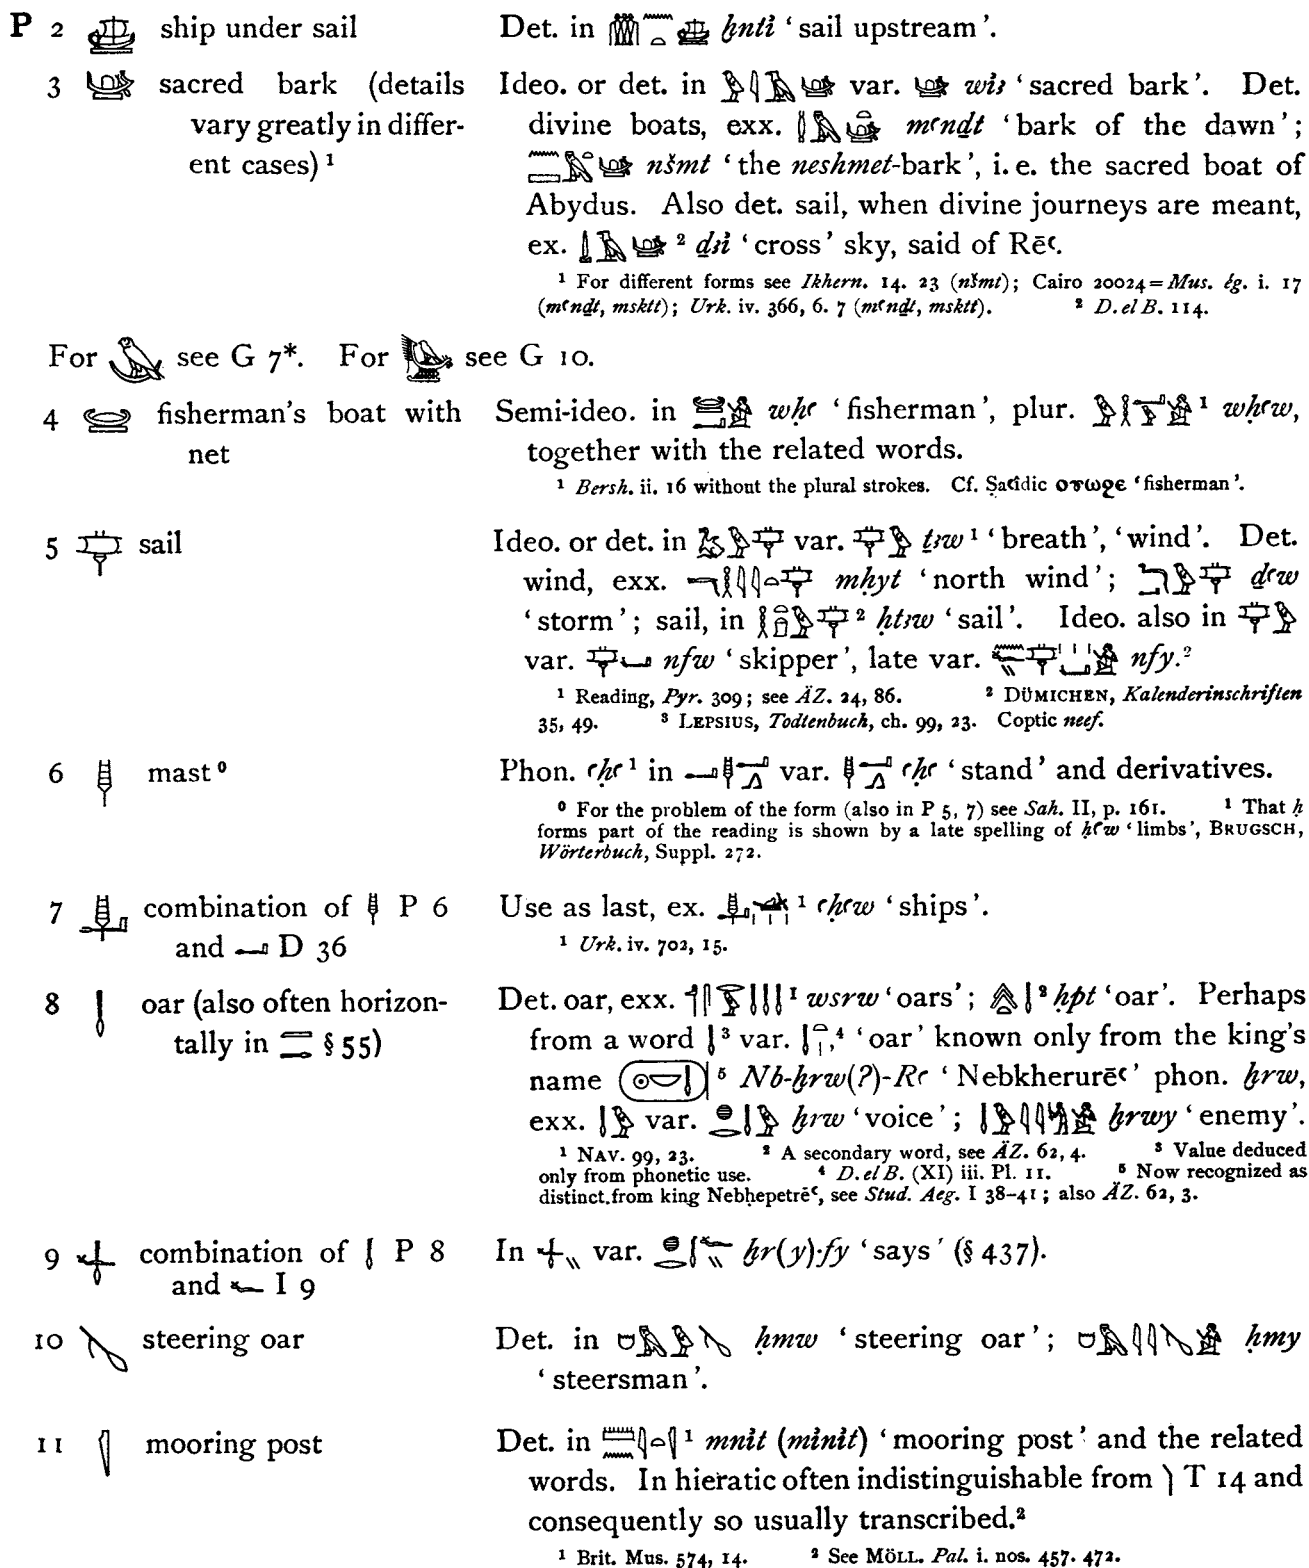 P 2 ship under sail Det. in ḫntỉ ‘sail upstream’.
3 sacred bark (details Ideo. or det. in var. wỉꜣ ‘sacred bark’. Det.
vary greatly in differ- divine boats, exx. mꜥnḏt ‘bark of the dawn’;
ent cases) ¹ nšmt ‘the neshmet-bark’, i. e. the sacred boat of
Abydus. Also det. sail, when divine journeys are meant,
ex. ² ḏꜣỉ ‘cross’ sky, said of Rēꜥ.
¹ For different forms see Ikhern. 14. 23 (nšmt); Cairo 20024=Mus. ég. i. 17
(mꜥnḏt, msktt); Urk. iv. 366, 6. 7 (mꜥnḏt, msktt). ² D. el B. 114.
For see G 7*. For see G 10.
4 fisherman's boat with Semi-ideo. in wḥꜥ ‘fisherman’, plur. ¹ wḥꜥw,
net together with the related words.
¹ Bersh. ii. 16 without the plural strokes. Cf. Ṣaꜥîdic ⲟⲩⲱϩⲉ ‘fisherman’.
5 sail Ideo. or det. in var. ṯꜣw ¹ ‘breath’, ‘wind’. Det.
wind, exx. mḥyt ‘north wind’; ḏꜥw
‘storm’; sail, in ² ḥtꜣw ‘sail’. Ideo. also in
var. nfw ‘skipper’, late var. nfy.²
¹ Reading, Pyr. 309; see ÄZ. 24, 86. ² DÜMICHEN, Kalenderinschriften
35, 49. ³ LEPSIUS, Todtenbuch, ch. 99, 23. Coptic neef.
6 mast ⁰ Phon. ꜥḥꜥ ¹ in var. ꜥḥꜥ ‘stand’ and derivatives.
⁰ For the problem of the form (also in P 5, 7) see Sah. II, p. 161. ¹ That ḥ
forms part of the reading is shown by a late spelling of ḥꜥw ‘limbs’, BRUGSCH,
Wörterbuch, Suppl. 272.
7 combination of P 6 Use as last, ex. ¹ ꜥḥꜥw ‘ships’.
and D 36
¹ Urk. iv. 702, 15.
8 oar (also often horizon- Det. oar, exx. ¹ wsrw ‘oars’; ² ḥpt ‘oar’. Perhaps
tally in § 55) from a word ³ var. ,⁴ ‘oar’ known only from the king's
name ⁵ Nb-ḫrw(?)-Rꜥ ‘Nebkherurēꜥ’ phon. ḫrw,
exx. var. ḫrw ‘voice’; ḫrwy ‘enemy’.
¹ NAV. 99, 23. ² A secondary word, see ÄZ. 62, 4. ³ Value deduced
only from phonetic use. ⁴ D. el B. (XI) iii. Pl. 11. ⁵ Now recognized as
distinct from king Nebḥepetrēꜥ, see Stud. Aeg. I 38–41; also ÄZ. 62, 3.
9 combination of P 8 In var. ḫr(y)·fy ‘says’ (§ 437).
and I 9
10 steering oar Det. in ḥmw ‘steering oar’; ḥmy
‘steersman’.
11 mooring post Det. in ¹ mnỉt (mỉnỉt) ‘mooring post’ and the related
words. In hieratic often indistinguishable from T 14 and
consequently so usually transcribed.²
¹ Brit. Mus. 574, 14. ² See MÖLL. Pal. i. nos. 457. 472.